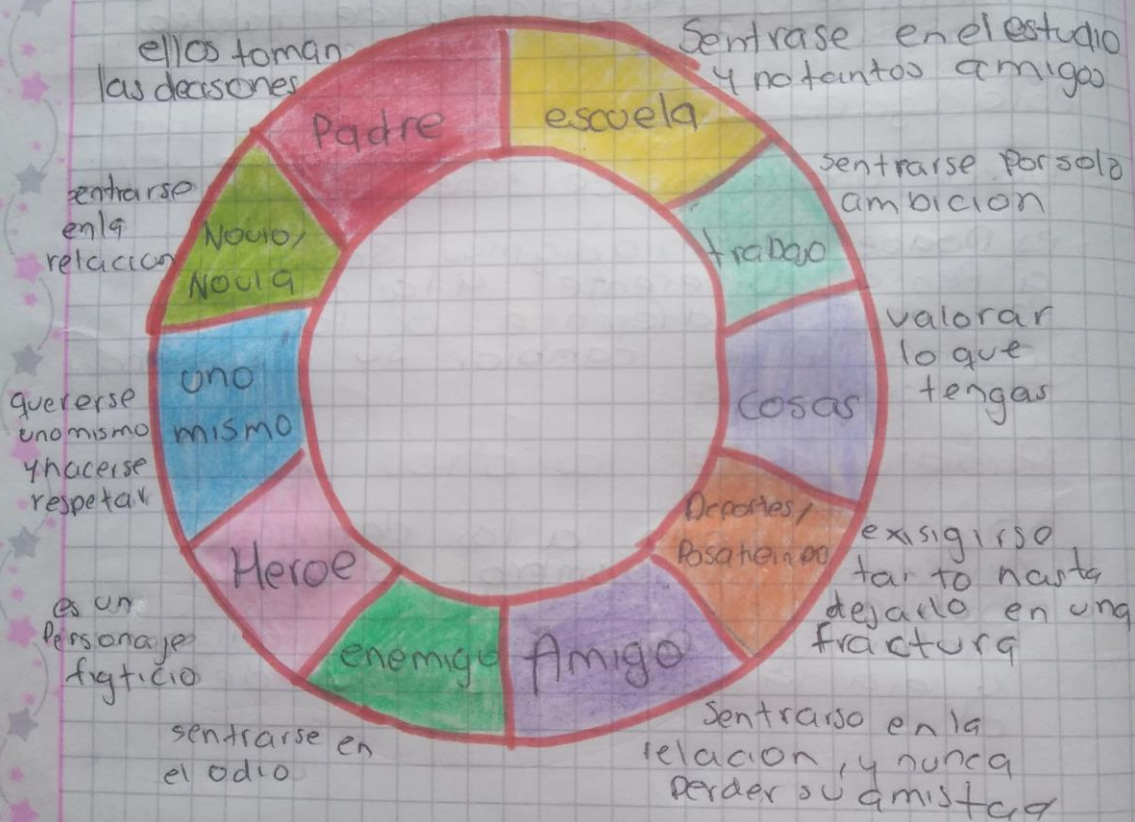 ellos toman
las decisones
Padre
escuela
Sentrase en el estudio
y no tantos amigos
trabajo
sentrarse por solo
ambicion
cosas
valorar
lo que
tengas
Deportes/
Posatiempo
exisigirso
tanto hasta
dejarlo en una
fractura
Amigo
Sentrarso en la
relacion, y nunca
perder su amistad
enemigo
sentrarse en
el odio
Heroe
es un
Personaje
figticio
uno
mismo
quererse
uno mismo
y hacerse
respetar
Novio/
Novia
sentrarse
en la
relacion